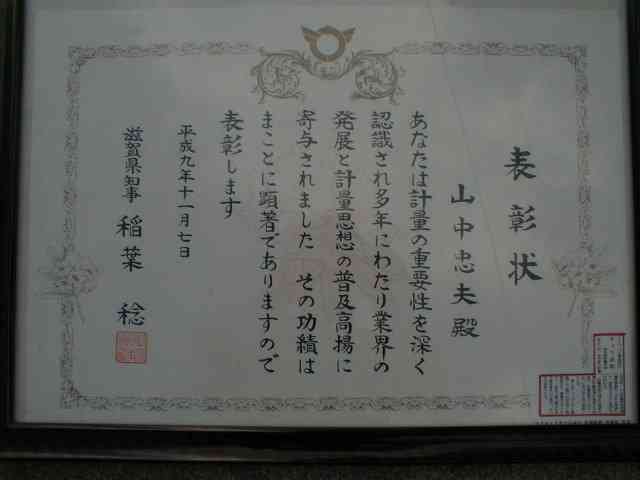 表彰状
山中忠夫殿
あなたは計量の重要性を深く
認識され多年にわたり業界の
発展と計量思想の普及高揚に
寄与されました その功績は
まことに顕著でありますので
表彰します
平成九年十一月七日
滋賀県知事 稲葉 稔